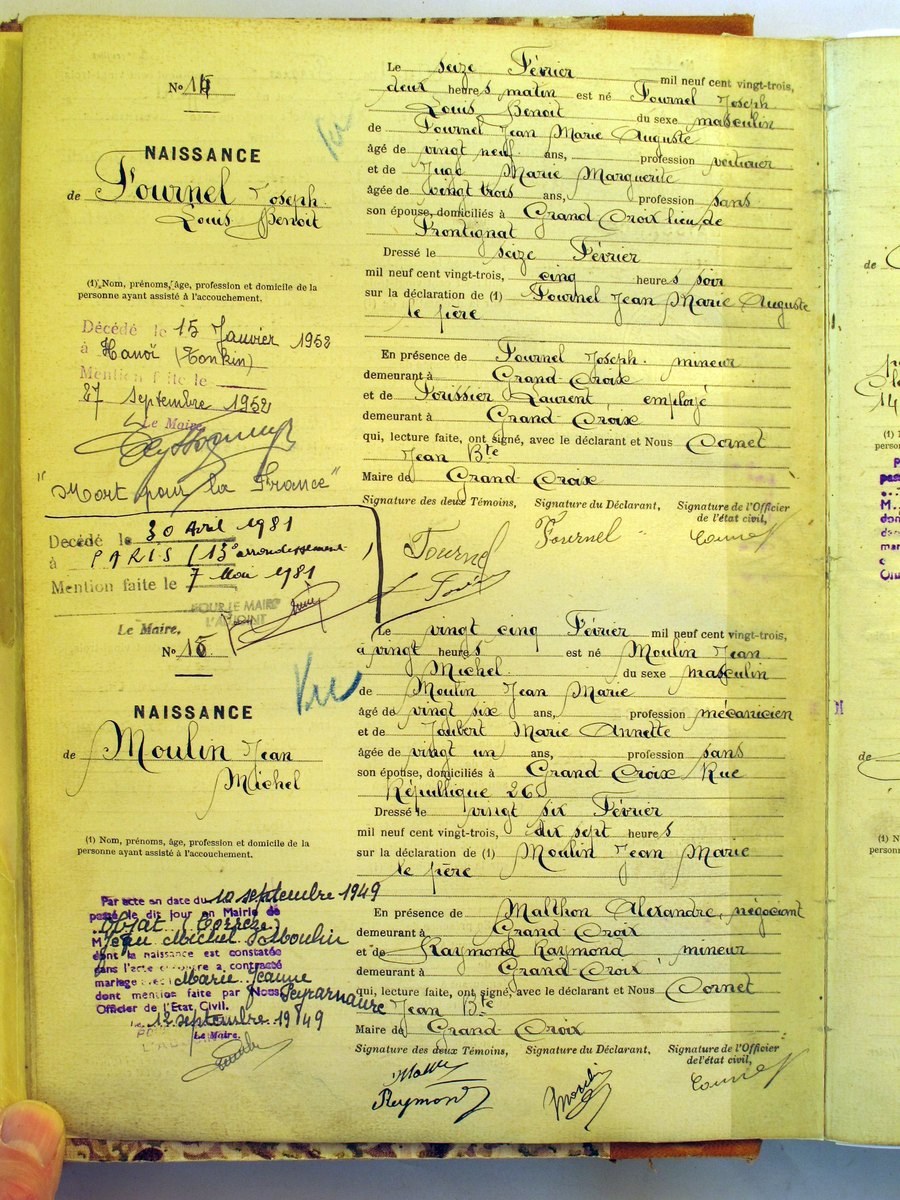 No 15
NAISSANCE
de Fournel Joseph
Louis Benoit
(1) Nom, prénoms, âge, profession et domicile de la
personne ayant assisté à l'accouchement.
Décédé le 15 Janvier 1952
à Hanoï (Tonkin)
Mention faite le
27 Septembre 1952
Le Maire
"Mort pour la France"
Le seize Février mil neuf cent vingt-trois,
deux heures matin est né Fournel Joseph
Louis Benoit du sexe masculin
de Fournel Jean Marie Auguste
âgé de vingt neuf ans, profession voiturier
et de Juge Marie Marguerite
âgée de vingt trois ans, profession sans
son épouse, domiciliés à Grand Croix lieu de
Frontignat
Dressé le seize Février
mil neuf cent vingt-trois, cinq heures soir
sur la déclaration de (1) Fournel Jean Marie Auguste
le père
En présence de Fournel Joseph, mineur
demeurant à Grand Croix
et de Forissier Laurent, employé
demeurant à Grand Croix
qui, lecture faite, ont signé, avec le déclarant et Nous Cornet
Jean Bte
Maire de Grand Croix
Signature des deux Témoins, Signature du Déclarant, Signature de l'Officier
de l'état civil,
Fournel Fournel Cornet
Décédé le 30 Avril 1981
à PARIS (13e arrondissement)
Mention faite le 7 Mai 1981
POUR LE MAIRE
L'ADJOINT
Le Maire,
No 16
NAISSANCE
de Moulin Jean
Michel
(1) Nom, prénoms, âge, profession et domicile de la
personne ayant assisté à l'accouchement.
Par acte en date du 10 septembre 1949
passé le dit jour en Mairie de
Objat (Corrèze)
M. Jean Michel Moulin
dont la naissance est constatée
dans l'acte a contracté
mariage avec Marie Jeanne
dont mention faite par Nous Peyrarnaure
Officier de l'Etat Civil.
le 12 septembre 1949
Le Maire,
Le vingt cinq Février mil neuf cent vingt-trois,
à vingt heures est né Moulin Jean
Michel du sexe masculin
de Moulin Jean Marie
âgé de vingt six ans, profession mécanicien
et de Joubert Marie Annette
âgée de vingt un ans, profession sans
son épouse, domiciliés à Grand Croix Rue
République 26
Dressé le vingt six Février
mil neuf cent vingt-trois, dix sept heures
sur la déclaration de (1) Moulin Jean Marie
le père
En présence de Malthon Alexandre, négociant
demeurant à Grand Croix
et de Raymond Raymond, mineur
demeurant à Grand Croix
qui, lecture faite, ont signé, avec le déclarant et Nous Cornet
Jean Bte
Maire de Grand Croix
Signature des deux Témoins, Signature du Déclarant, Signature de l'Officier
de l'état civil,
Reymond Moulin Cornet